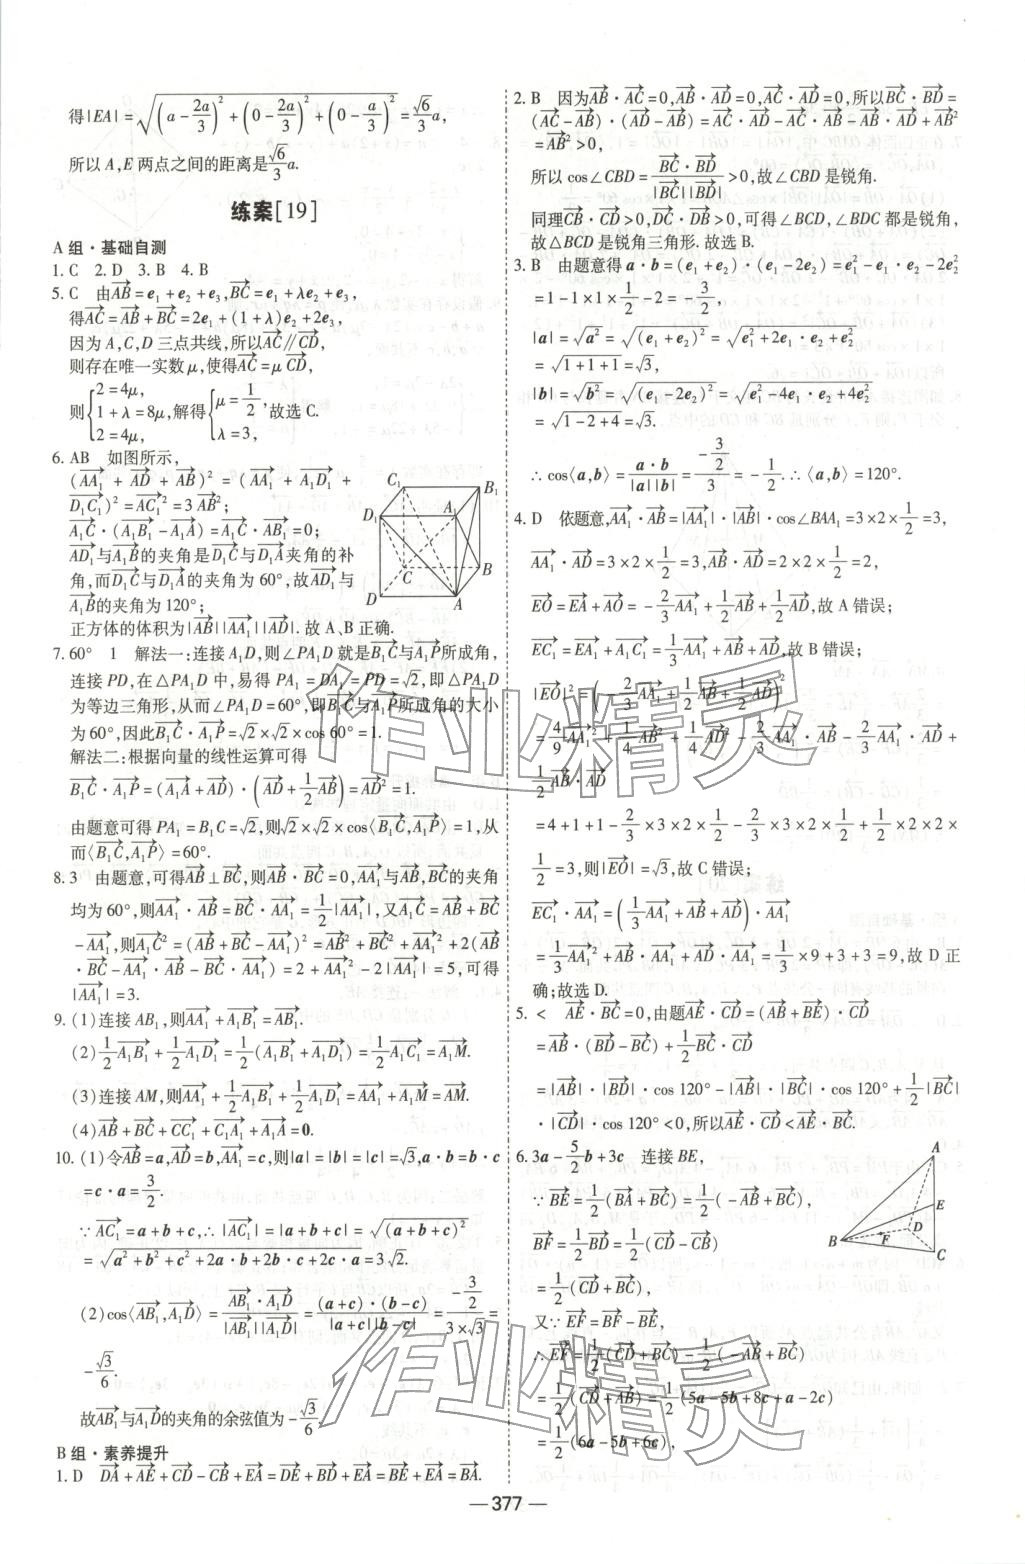 得|EA|=√((a-2a/3)²+(0-2a/3)²+(0-a/3)²)=√6/3 a,
所以 A,E 两点之间的距离是√6/3 a.
练案[19]
A 组·基础自测
1. C  2. D  3. B  4. B
5. C  由→AB=e₁+e₂+e₃,→BC=e₁+λe₂+e₃,
得→AC=→AB+→BC=2e₁+(1+λ)e₂+2e₃,
因为 A,C,D 三点共线,所以→AC∥→CD,
则存在唯一实数 μ,使得→AC=μ→CD,
则{2=4μ, 1+λ=8μ, 2=4μ, 解得{μ=1/2, λ=3, 故选 C.
6. AB  如图所示,
(→AA₁+→AD+→AB)²=(→AA₁+→A₁D₁+
→D₁C₁)²=→AC₁²=3→AB²;
→A₁C·(→A₁B₁-→A₁A)=→A₁C·→AB₁=0;
→AD₁与→A₁B的夹角是→D₁C与→D₁A夹角的补
角,而→D₁C与→D₁A的夹角为 60°,故→AD₁与
→A₁B的夹角为 120°;
正方体的体积为|→AB||→AA₁||→AD|.故 A、B 正确.
C₁ B₁ D₁ A₁ C B D A
7. 60°  1  解法一:连接 A₁D,则∠PA₁D 就是→B₁C与→A₁P所成角,
连接 PD,在△PA₁D 中,易得 PA₁=DA₁=PD=√2,即△PA₁D
为等边三角形,从而∠PA₁D=60°,即→B₁C与→A₁P所成角的大小
为 60°,因此→B₁C·→A₁P=√2×√2×cos 60°=1.
解法二:根据向量的线性运算可得
→B₁C·→A₁P=(→A₁A+→AD)·(→AD+1/2→AB)=→AD²=1.
由题意可得 PA₁=B₁C=√2,则√2×√2×cos⟨→B₁C,→A₁P⟩=1,从
而⟨→B₁C,→A₁P⟩=60°.
8. 3  由题意,可得→AB⊥→BC,则→AB·→BC=0,→AA₁与→AB,→BC的夹角
均为 60°,则→AA₁·→AB=→BC·→AA₁=1/2|→AA₁|,又→A₁C=→AB+→BC
-→AA₁,则→A₁C²=(→AB+→BC-→AA₁)²=→AB²+→BC²+→AA₁²+2(→AB
·→BC-→AA₁·→AB-→BC·→AA₁)=2+→AA₁²-2|→AA₁|=5,可得
|→AA₁|=3.
9. (1)连接 AB₁,则→AA₁+→A₁B₁=→AB₁.
(2)1/2→A₁B₁+1/2→A₁D₁=1/2(→A₁B₁+→A₁D₁)=1/2→A₁C₁=→A₁M.
(3)连接 AM,则→AA₁+1/2→A₁B₁+1/2→A₁D₁=→AA₁+→A₁M=→AM.
(4)→AB+→BC+→CC₁+→C₁A₁+→A₁A=0.
10. (1)令→AB=a,→AD=b,→AA₁=c,则|a|=|b|=|c|=√3,a·b=b·c
=c·a=3/2.
∵→AC₁=a+b+c,∴|→AC₁|=|a+b+c|=√((a+b+c)²)
=√(a²+b²+c²+2a·b+2b·c+2c·a)=3√2.
(2)cos⟨→AB₁,→A₁D⟩=(→AB₁·→A₁D)/(|→AB₁||→A₁D|)=((a+c)·(b-c))/(|a+c||b-c|)=(-3/2)/(3×√3)=
-√3/6.
故→AB₁与→A₁D的夹角的余弦值为-√3/6.
B 组·素养提升
1. D  →DA+→AE+→CD-→CB+→EA=→DE+→BD+→EA=→BE+→EA=→BA.
2. B  因为→AB·→AC=0,→AB·→AD=0,→AC·→AD=0,所以→BC·→BD=
(→AC-→AB)·(→AD-→AB)=→AC·→AD-→AC·→AB-→AB·→AD+→AB²
=→AB²>0,
所以 cos∠CBD=(→BC·→BD)/(|→BC||→BD|)>0,故∠CBD 是锐角.
同理→CB·→CD>0,→DC·→DB>0,可得∠BCD,∠BDC 都是锐角,
故△BCD 是锐角三角形. 故选 B.
3. B  由题意得 a·b=(e₁+e₂)·(e₁-2e₂)=e₁²-e₁·e₂-2e₂²
=1-1×1×1/2-2=-3/2,
|a|=√a²=√((e₁+e₂)²)=√(e₁²+2e₁·e₂+e₂²)
=√(1+1+1)=√3,
|b|=√b²=√((e₁-2e₂)²)=√(e₁²-4e₁·e₂+4e₂²)
=√(1-2+4)=√3.
∴cos⟨a,b⟩=(a·b)/(|a||b|)=(-3/2)/3=-1/2.∴⟨a,b⟩=120°.
4. D  依题意,→AA₁·→AB=|→AA₁|·|→AB|·cos∠BAA₁=3×2×1/2=3,
→AA₁·→AD=3×2×1/2=3,→AB·→AD=2×2×1/2=2,
→EO=→EA+→AO=-2/3→AA₁+1/2→AB+1/2→AD,故 A 错误;
→EC₁=→EA₁+→A₁C₁=1/3→AA₁+→AB+→AD,故 B 错误;
|→EO|²=(-2/3→AA₁+1/2→AB+1/2→AD)²
=4/9→AA₁²+1/4→AB²+1/4→AD²-2/3→AA₁·→AB-2/3→AA₁·→AD+
1/2→AB·→AD
=4+1+1-2/3×3×2×1/2-2/3×3×2×1/2+1/2×2×2×
1/2=3,则|→EO|=√3,故 C 错误;
→EC₁·→AA₁=(1/3→AA₁+→AB+→AD)·→AA₁
=1/3→AA₁²+→AB·→AA₁+→AD·→AA₁=1/3×9+3+3=9,故 D 正
确;故选 D.
5. <  →AE·→BC=0,由题→AE·→CD=(→AB+→BE)·→CD
=→AB·(→BD-→BC)+1/2→BC·→CD
=|→AB|·|→BD|·cos 120°-|→AB|·|→BC|·cos 120°+1/2|→BC|
·|→CD|·cos 120°<0,所以→AE·→CD<→AE·→BC.
6. 3a-5/2b+3c  连接 BE,
∵→BE=1/2(→BA+→BC)=1/2(-→AB+→BC),
→BF=1/2→BD=1/2(→CD-→CB)
=1/2(→CD+→BC),
又∵→EF=→BF-→BE,
∴→EF=1/2(→CD+→BC)-1/2(-→AB+→BC)
=1/2(→CD+→AB)=1/2(5a-5b+8c+a-2c)
=1/2(6a-5b+6c),
A E D F B C
—377—
作业精灵
作业精灵